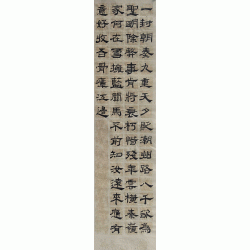 一封朝奏九重天夕貶潮州路八千欲為
聖明除弊事肯將衰朽惜殘年雲橫秦嶺
家何在雪擁藍關馬不前知汝遠來應有
意好收吾骨瘴江邊